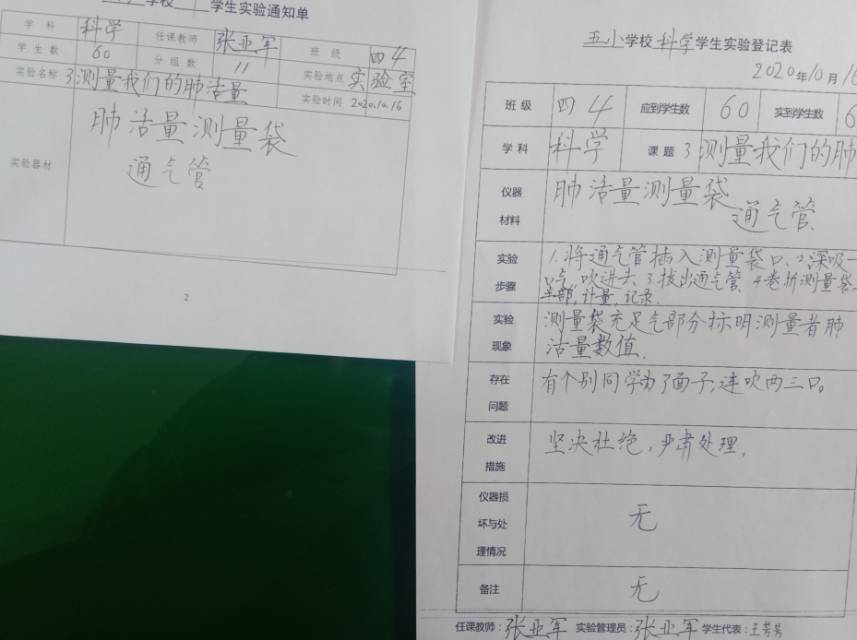 学校 学生实验通知单
学科 科学 任课教师 张亚军 班级 四4
学生数 60 分组数 11 实验地点 实验室
实验名称 3测量我们的肺活量 实验时间 2020.10.16
实验器材 肺活量测量袋
通气管
2
五小学校科学学生实验登记表
2020年10月16
班级 四4 应到学生数 60 实到学生数 6
学科 科学 课题 3测量我们的肺
仪器材料 肺活量测量袋 通气管
实验步骤 1.将通气管插入测量袋口.2.深吸一
口气,吹进去 3.拔出通气管 4.卷折测量袋
半部,计量,记录.
实验现象 测量袋充足气部分标明测量者肺
活量数值.
存在问题 有个别同学为了面子,连吹两三口。
改进措施 坚决杜绝,严肃处理.
仪器损坏与处理情况 无
备注 无
任课教师:张亚军 实验管理员:张亚军 学生代表:王芳芳